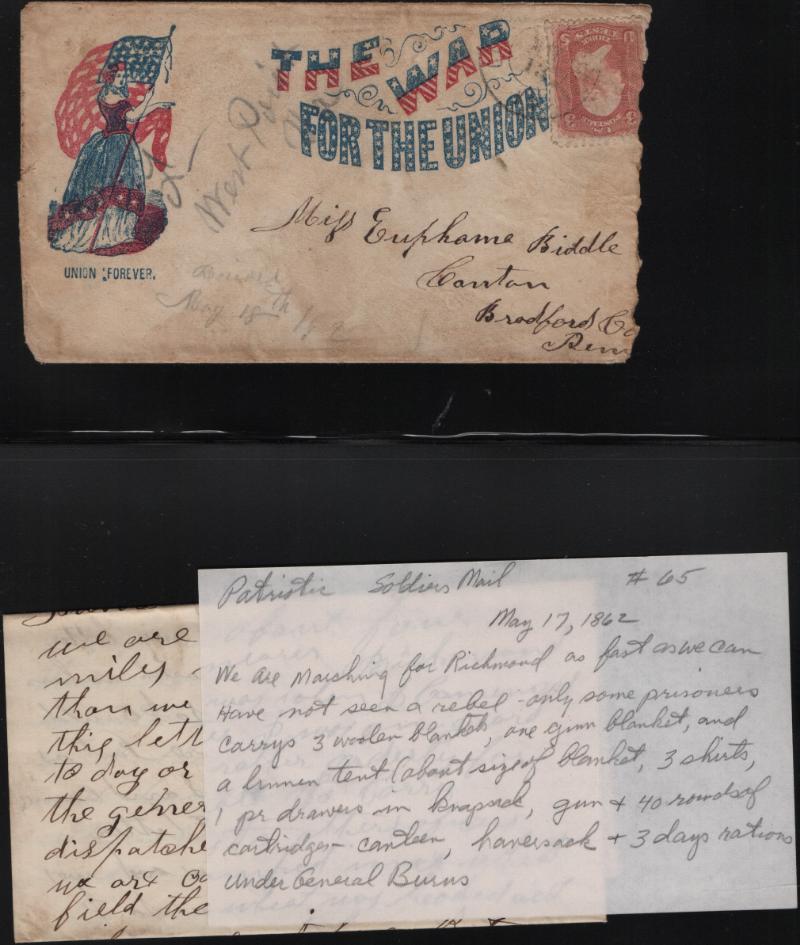 THE WAR
FOR THE UNION
UNION FOREVER.
West Point
Miss Euphama Biddle
Canton
Bradford Co
Penn
May 18th
we are
miles
than we
this lett
to day or
the gener
dispatche
we are
field the
Patriotic Soldiers Mail # 65
May 17, 1862
We are Marching for Richmond as fast as we can
Have not seen a rebel - only some prisoners
carrys 3 woolen blankets, one gum blanket, and
a linnen tent (about size of blanket, 3 shirts,
1 pr drawers in knapsack, gun + 40 rounds of
cartridges - canteen, haversack + 3 days rations
Under General Burns